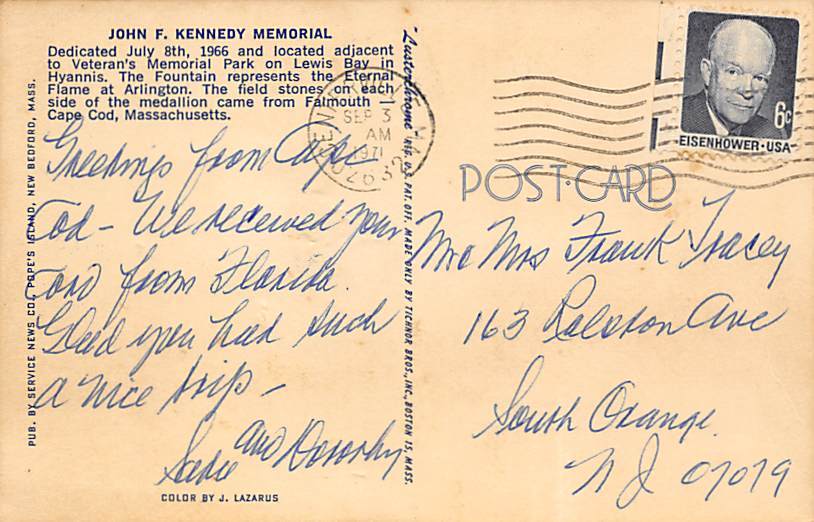 JOHN F. KENNEDY MEMORIAL
Dedicated July 8th, 1966 and located adjacent
to Veteran's Memorial Park on Lewis Bay in
Hyannis. The Fountain represents the Eternal
Flame at Arlington. The field stones on each
side of the medallion came from Falmouth -
Cape Cod, Massachusetts.
Greetings from Cape
Cod - We received your
Card from Florida.
Glad you had such
a nice trip -
Sadie and Dorothy
COLOR BY J. LAZARUS
PUB. BY SERVICE NEWS CO., POPE'S ISLAND, NEW BEDFORD, MASS.
"Lusterchrome" REG. U.S. PAT. OFF. MADE ONLY BY TICHNOR BROS., INC., BOSTON 15, MASS.
SEP 3
AM
1971
07632
6c
EISENHOWER·USA
POST·CARD
Mr Mrs Frank Tracey
163 Ralston Ave
South Orange
NJ 07079